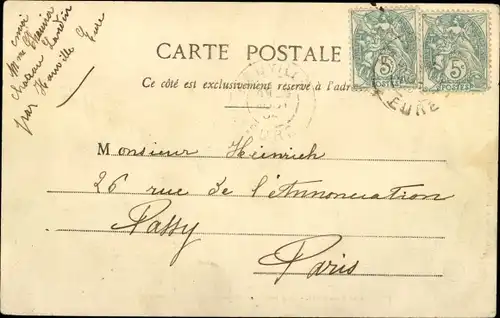 CARTE POSTALE
Ce côté est exclusivement réservé à l'adres
Monsieur Heinrich
26 rue de l'Annonciation
Passy
Paris
envoi
Mme
Château
par
Eure
5 5
POSTES POSTES
EURE
EURE